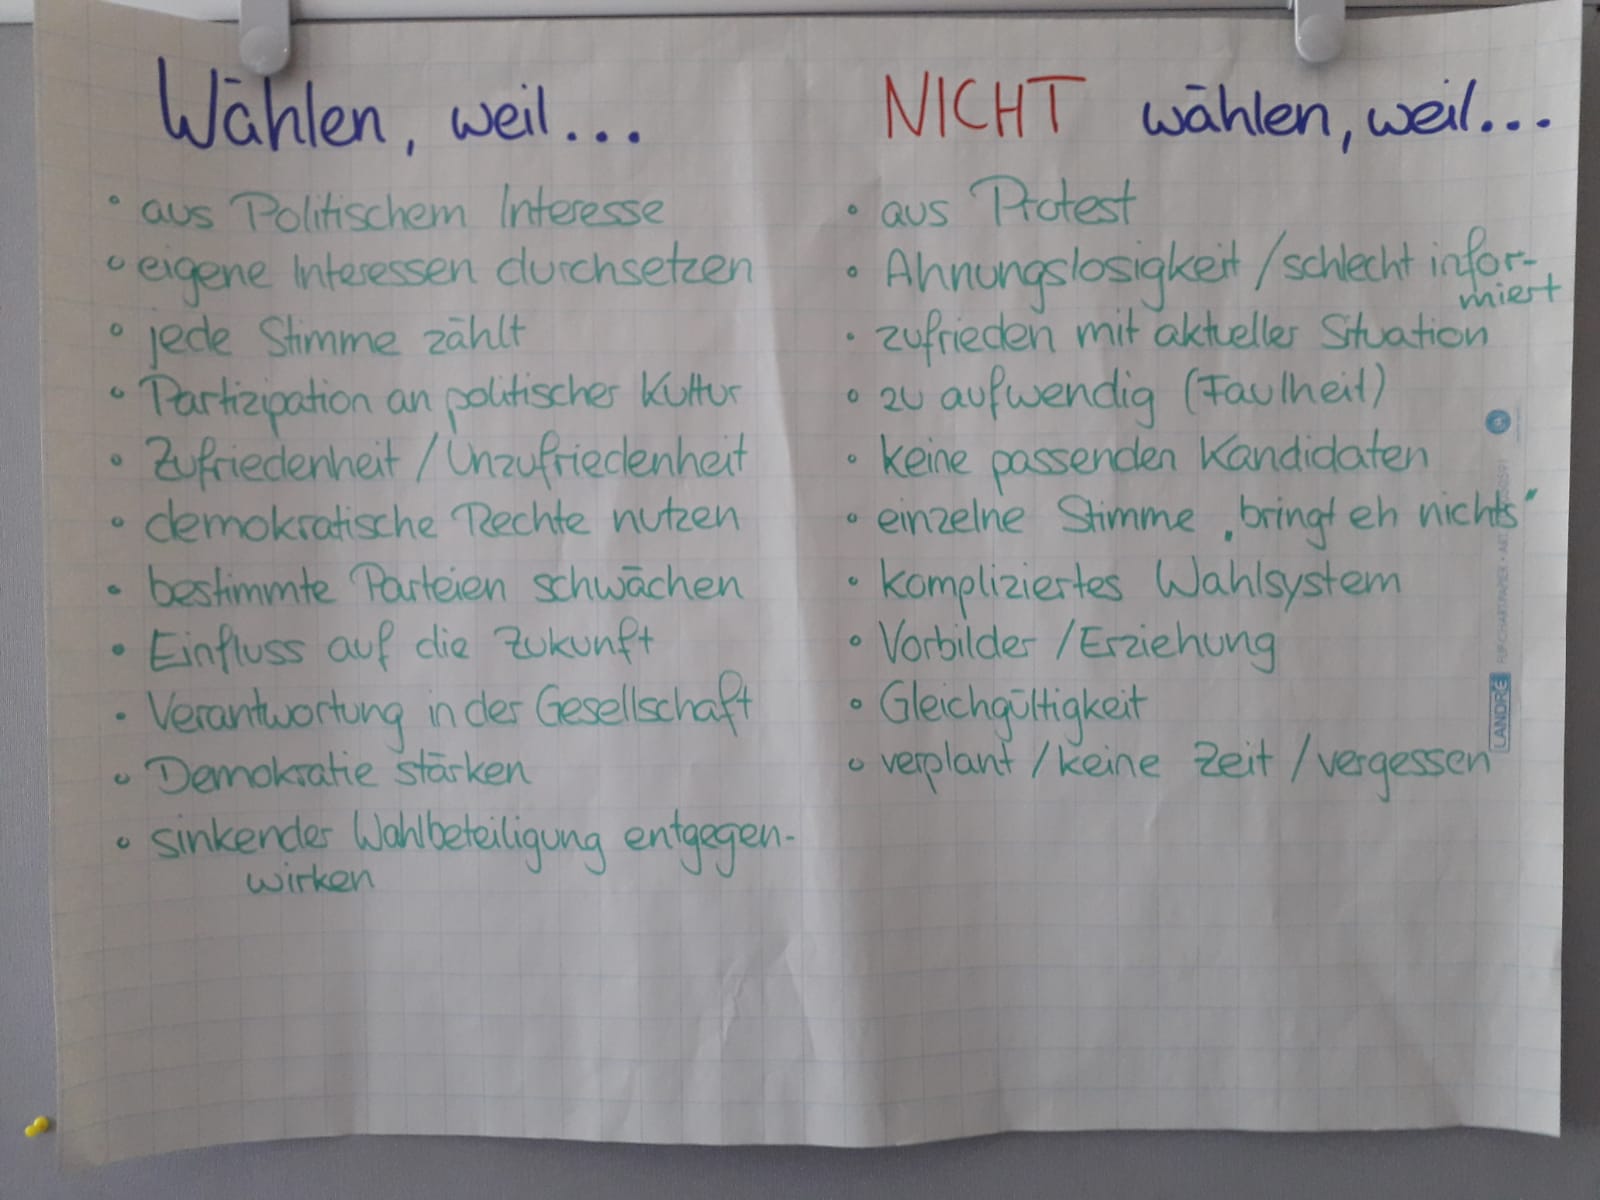 Wählen, weil...
• aus Politischem Interesse
• eigene Interessen durchsetzen
• jede Stimme zählt
• Partizipation an politischer Kultur
• Zufriedenheit / Unzufriedenheit
• demokratische Rechte nutzen
• bestimmte Parteien schwächen
• Einfluss auf die Zukunft
• Verantwortung in der Gesellschaft
• Demokratie stärken
• sinkender Wahlbeteiligung entgegen-
wirken
NICHT wählen, weil...
• aus Protest
• Ahnungslosigkeit / schlecht infor-
miert
• zufrieden mit aktueller Situation
• zu aufwendig (Faulheit)
• keine passenden Kandidaten
• einzelne Stimme „bringt eh nichts"
• kompliziertes Wahlsystem
• Vorbilder / Erziehung
• Gleichgültigkeit
• verplant / keine Zeit / vergessen
LANDRÉ FLIPCHARTPAPIER • ART.